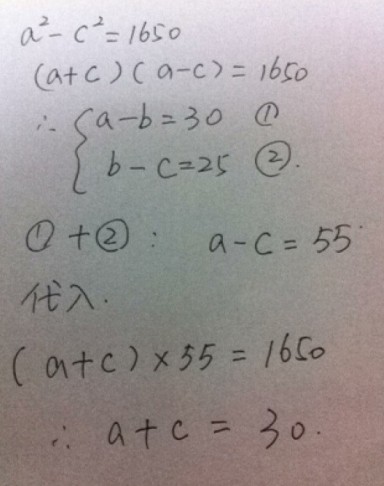 a²-c²=1650
(a+c)(a-c)=1650
∴ { a-b=30 ①
b-c=25 ②.
①+②: a-c=55
代入.
(a+c)×55=1650
∴ a+c=30.